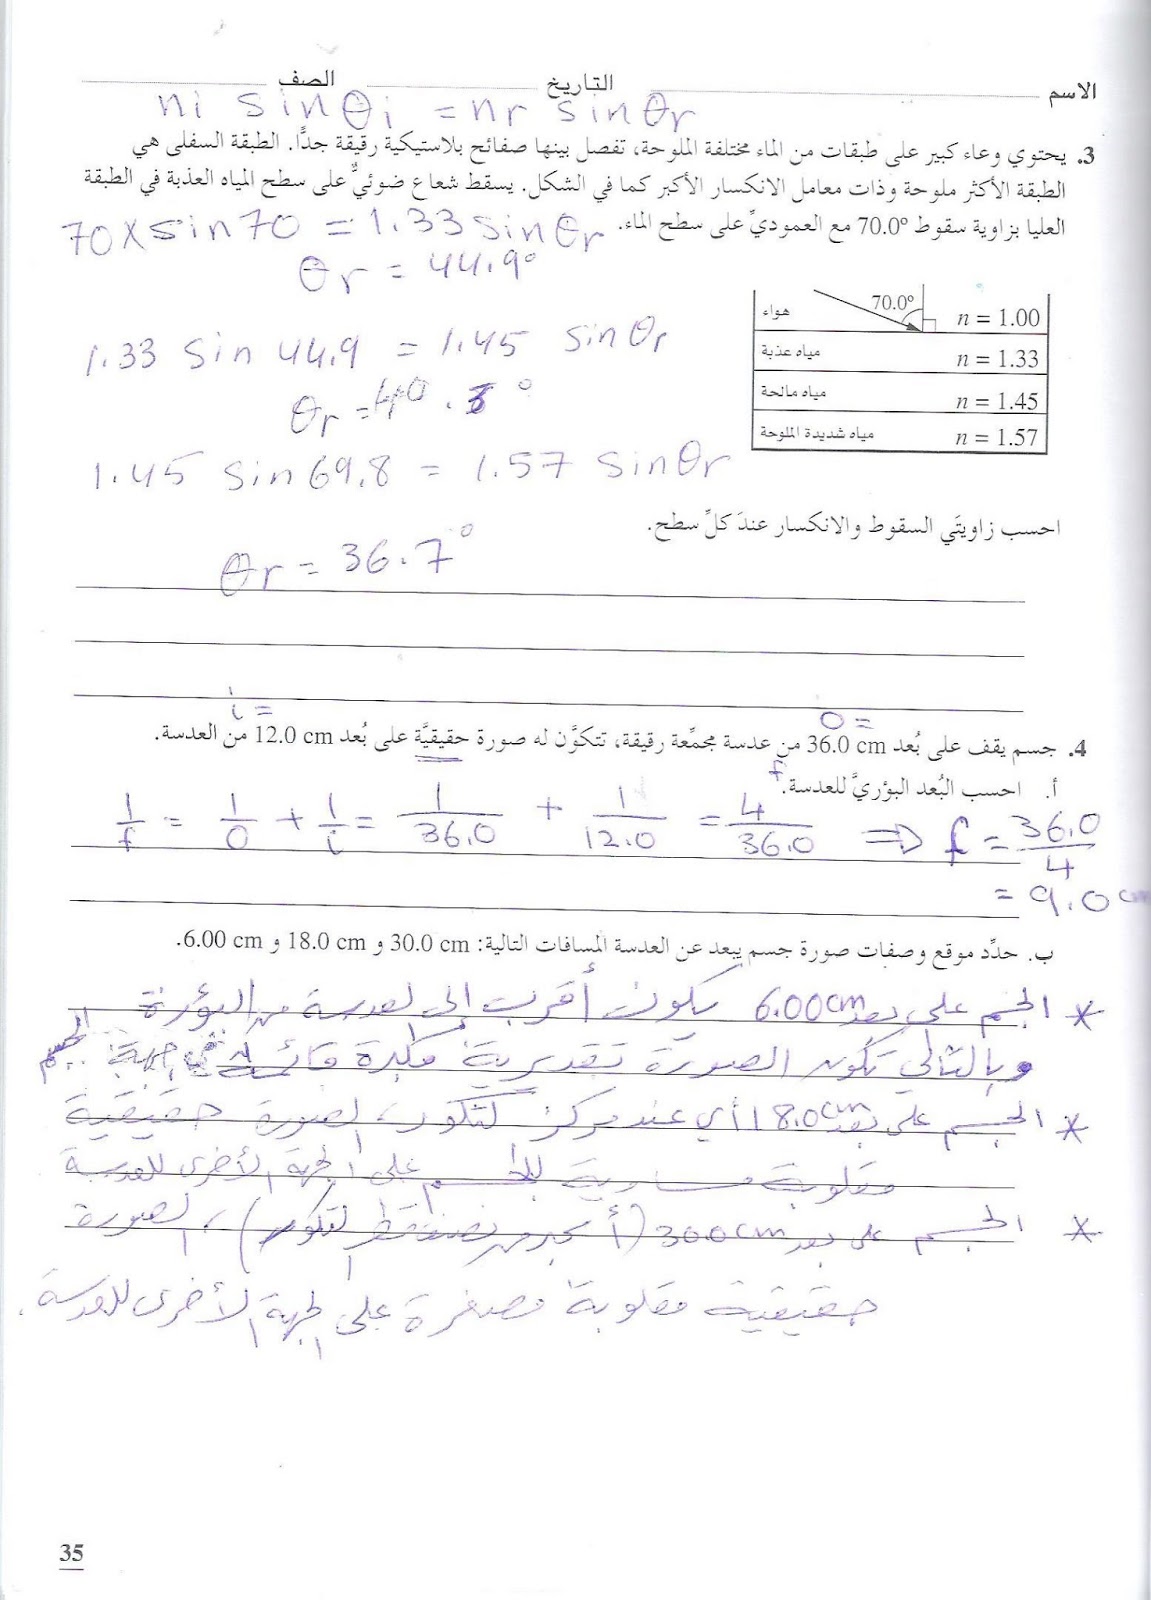 الاسم التاريخ الصف
ni sinθi = nr sinθr
3. يحتوي وعاء كبير على طبقات من الماء مختلفة الملوحة، تفصل بينها صفائح بلاستيكية رقيقة جدًّا. الطبقة السفلى هي
الطبقة الأكثر ملوحة وذات معامل الانكسار الأكبر كما في الشكل. يسقط شعاع ضوئيٌّ على سطح المياه العذبة في الطبقة
العليا بزاوية سقوط 70.0° مع العموديّ على سطح الماء.
70 x sin70 = 1.33 sinθr
θr = 44.9°
هواء 70.0° n = 1.00
مياه عذبة n = 1.33
مياه مالحة n = 1.45
مياه شديدة الملوحة n = 1.57
1.33 sin 44.9 = 1.45 sinθr
θr = 40.3°
1.45 sin 69.8 = 1.57 sinθr
احسب زاويتَي السقوط والانكسار عندَ كلِّ سطح.
θr = 36.7°
o = i =
4. جسم يقف على بُعد 36.0 cm من عدسة مجمِّعة رقيقة، تتكوَّن له صورة حقيقيَّة على بُعد 12.0 cm من العدسة.
أ. احسب البُعد البؤريَّ للعدسة. f
1/f = 1/o + 1/i = 1/36.0 + 1/12.0 = 4/36.0 ⇒ f = 36.0/4
= 9.0 cm
ب. حدِّد موقع وصفات صورة جسم يبعد عن العدسة المسافات التالية: 30.0 cm و 18.0 cm و 6.00 cm.
* الجسم على بعد 6.00cm يكون أقرب إلى العدسة من البؤرة
وبالتالي تكون الصورة تقديرية مكبرة قائمة في جهة الجسم
* الجسم على بعد 18.0cm أي عند مركز التكور، الصورة حقيقية
مقلوبة مساوية للجسم على الجهة الأخرى للعدسة
* الجسم على بعد 30.0cm (أكبر من نصف قطر التكور)، الصورة
حقيقية مقلوبة مصغرة على الجهة الأخرى للعدسة.
35